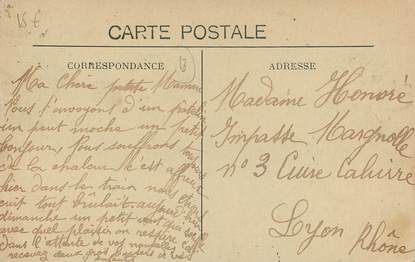 15 €
CARTE POSTALE
CORRESPONDANCE
ADRESSE
Ma Chère petite Maman
Nous t'envoyons d'un
un peut moche un petit
bonjour, Nous souffrons
de la chaleur c'est
hier dans le train nous
cuit tout brûlait aujour
dimanche un petit vent qui
avec quel plaisir on respire
Dans l'attente de vos nouvelles
recevez deux gros baisers de vos
enfants
Madame Honoré
Impasse Marguolle
n° 3 Cuire Caluire
Lyon
Rhône